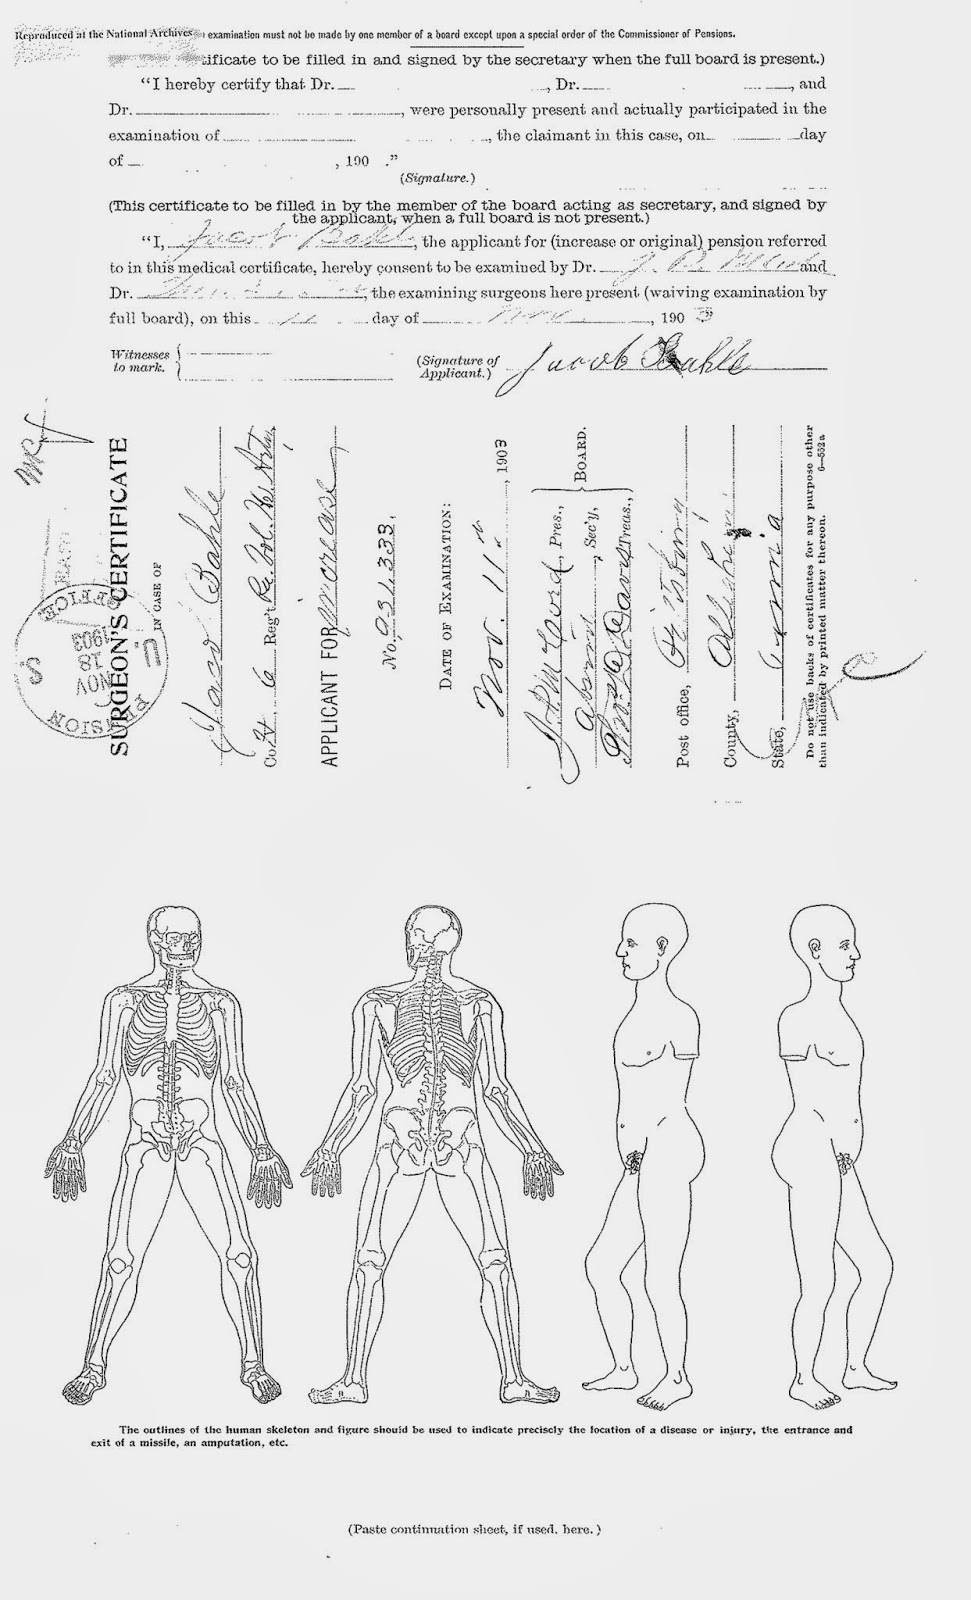 Reproduced at the National Archives examination must not be made by one member of a board except upon a special order of the Commissioner of Pensions.
tificate to be filled in and signed by the secretary when the full board is present.)
"I hereby certify that Dr. , Dr. , and
Dr. , were personally present and actually participated in the
examination of , the claimant in this case, on day
of , 190 ."
(Signature.)
(This certificate to be filled in by the member of the board acting as secretary, and signed by
the applicant, when a full board is not present.)
"I, Jacob Bahl, the applicant for (increase or original) pension referred
to in this medical certificate, hereby consent to be examined by Dr. and
Dr. , the examining surgeons here present (waiving examination by
full board), on this 11 day of Nov , 1903
Witnesses
to mark.
(Signature of
Applicant.) Jacob Bahle
SURGEON'S CERTIFICATE
IN CASE OF
Jacob Bahle
Co. H 6 Reg't Pa. Vol. Hv. Arty.
APPLICANT FOR increase
No. 931,333.
DATE OF EXAMINATION:
Nov. 11", 1903
, Pres.,
Absent, Sec'y,
Davis Treas.,
BOARD.
Post office, Pittsburg
County, Allegheny
State, Penna
Do not use backs of certificates for any purpose other
than indicated by printed matter thereon. 6—552a
U.S. PENSION OFFICE
NOV 18 1903
The outlines of the human skeleton and figure should be used to indicate precisely the location of a disease or injury, the entrance and
exit of a missile, an amputation, etc.
(Paste continuation sheet, if used, here.)